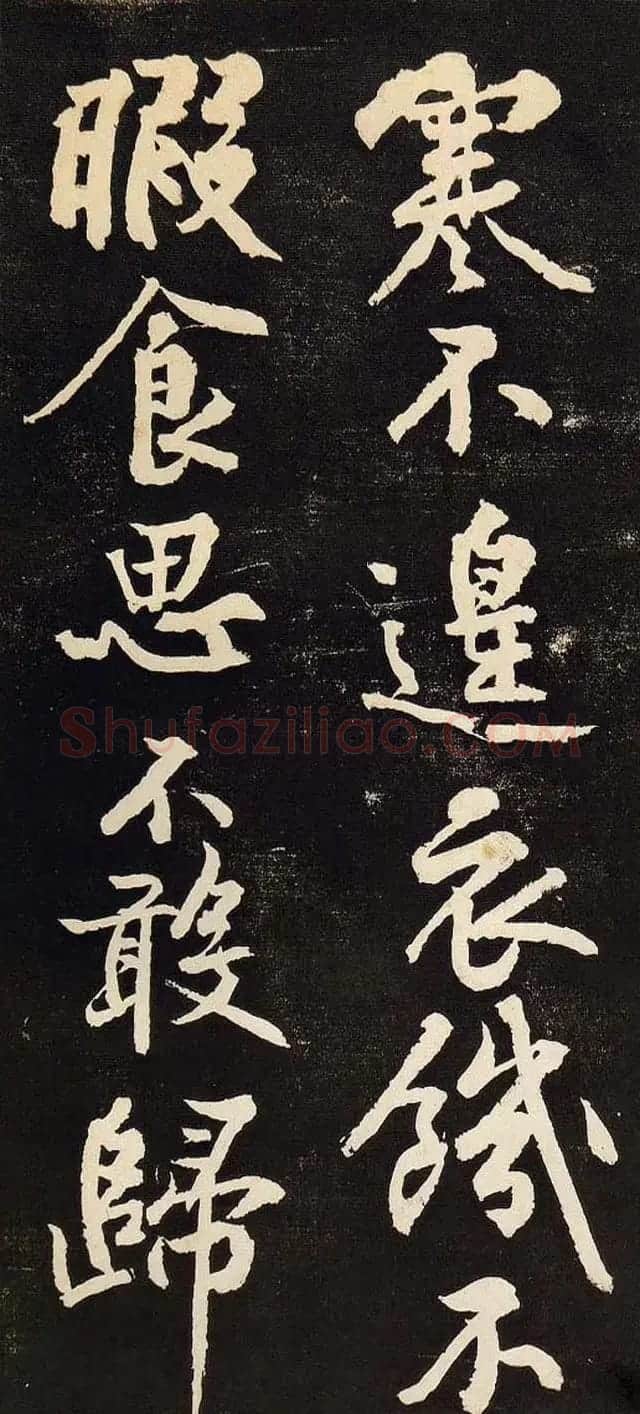 寒不遑衣饑不
暇食思不敢歸
Shufaziliao.COM